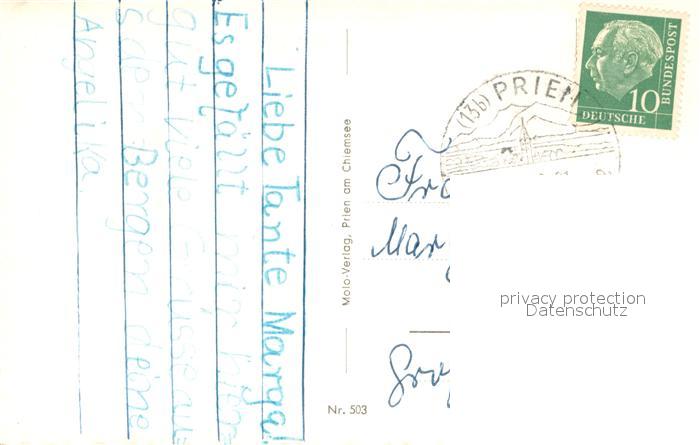 Liebe Tante Marga!
Es gefällt mir hier
gut viele Grüsse aus
den Bergen deine
Angelika
Molo-Verlag, Prien am Chiemsee
Nr. 503
(13b) PRIEN
10
DEUTSCHE
BUNDESPOST
Fr
Mar
privacy protection
Datenschutz